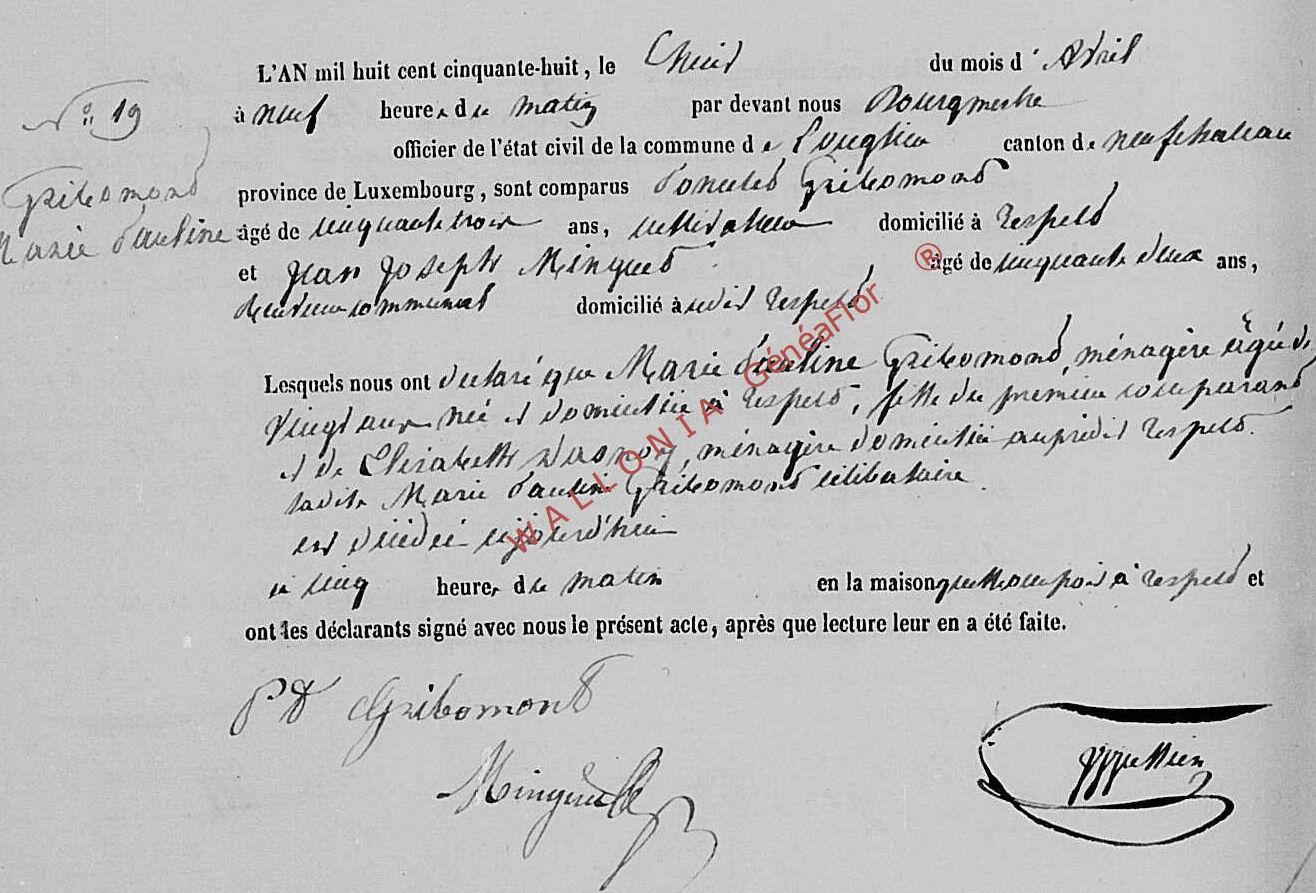 L'AN mil huit cent cinquante-huit, le huit du mois d' Avril
N° 19
à neuf heures du matin par devant nous Bourgmestre
officier de l'état civil de la commune de Longlier canton de neufchateau
Gribomont
province de Luxembourg, sont comparus Gribomont
Marie Pauline
âgé de cinquante trois ans, cultivateur domicilié à respelt
et Jean Joseph Minguet âgé de cinquante deux ans,
receveur communal domicilié à sudit respelt
Lesquels nous ont déclaré que Marie Pauline Gribomont, ménagère âgée de
vingt ans née et domiciliée à respelt, fille du premier comparant
et de Elisabeth Dasnoy, ménagère domiciliée au predit respelt.
ladite Marie Pauline Gribomont célibataire
est décédée aujourd'hui
à cinq heures du matin en la maison qu'elle occupoit à respelt et
ont les déclarants signé avec nous le présent acte, après que lecture leur en a été faite.
Gribomont
WALLONIA GénéaFlor ®